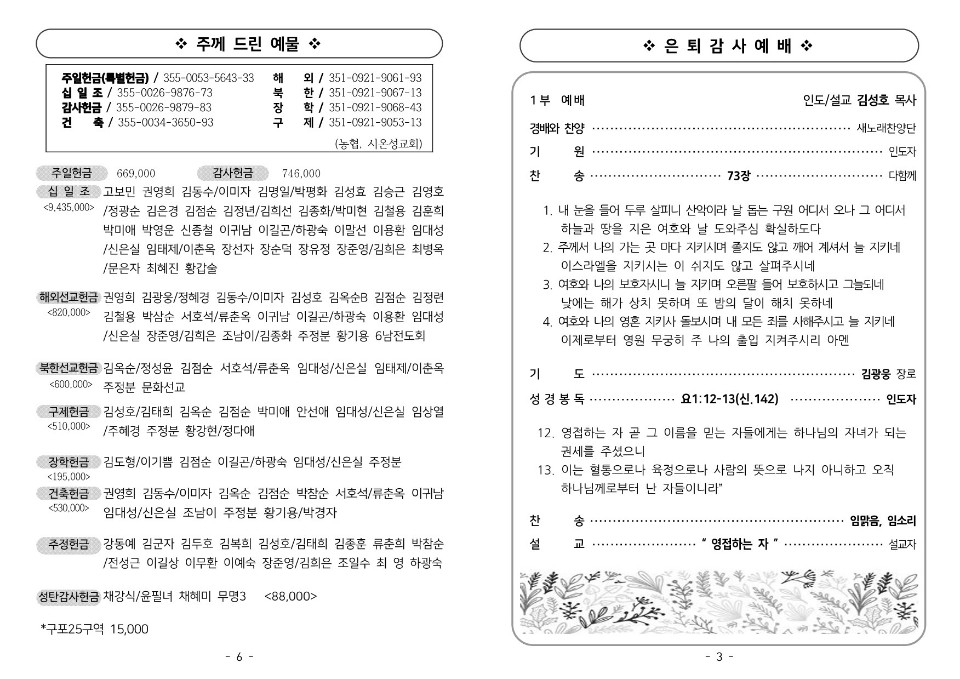 ❖ 주께 드린 예물 ❖
주일헌금(특별헌금) / 355-0053-5643-33 해 외 / 351-0921-9061-93
십 일 조 / 355-0026-9876-73 북 한 / 351-0921-9067-13
감사헌금 / 355-0026-9879-83 장 학 / 351-0921-9068-43
건 축 / 355-0034-3650-93 구 제 / 351-0921-9053-13
(농협, 시온성교회)
주일헌금 669,000 감사헌금 746,000
십 일 조 고보민 권영희 김동수/이미자 김명일/박평화 김성효 김승근 김영호
<9,435,000> /정광순 김은경 김점순 김정년/김희선 김종화/박미현 김철용 김훈희
박미애 박영운 신종철 이귀남 이길곤/하광숙 이말선 이용환 임대성
/신은실 임태제/이춘옥 장선자 장순덕 장유정 장준영/김희은 최병옥
/문은자 최혜진 황갑술
해외선교헌금 권영희 김광웅/정혜경 김동수/이미자 김성호 김옥순B 김점순 김정련
<820,000> 김철용 박삼순 서호석/류춘옥 이귀남 이길곤/하광숙 이용환 임대성
/신은실 장준영/김희은 조남이/김종화 주정분 황기용 6남전도회
북한선교헌금 김옥순/정성윤 김점순 서호석/류춘옥 임대성/신은실 임태제/이춘옥
<600,000> 주정분 문화선교
구제헌금 김성호/김태희 김옥순 김점순 박미애 안선애 임대성/신은실 임상열
<510,000> /주혜경 주정분 황강현/정다애
장학헌금 김도형/이기쁨 김점순 이길곤/하광숙 임대성/신은실 주정분
<195,000>
건축헌금 권영희 김동수/이미자 김옥순 김점순 박참순 서호석/류춘옥 이귀남
<530,000> 임대성/신은실 조남이 주정분 황기용/박경자
주정헌금 강동예 김군자 김두호 김복희 김성호/김태희 김종훈 류춘희 박참순
/전성근 이길상 이무환 이예숙 장준영/김희은 조일수 최 영 하광숙
성탄감사헌금 채강식/윤필녀 채혜미 무명3 <88,000>
*구포25구역 15,000
- 6 -
❖ 은 퇴 감 사 예 배 ❖
1부 예배 인도/설교 김성호 목사
경배와 찬양 ········ 새노래찬양단
기 원 ········ 인도자
찬 송 ········ 73장 ········ 다함께
1. 내 눈을 들어 두루 살피니 산악이라 날 돕는 구원 어디서 오나 그 어디서
하늘과 땅을 지은 여호와 날 도와주심 확실하도다
2. 주께서 나의 가는 곳 마다 지키시며 졸지도 않고 깨어 계셔서 늘 지키네
이스라엘을 지키시는 이 쉬지도 않고 살펴주시네
3. 여호와 나의 보호자시니 늘 지키며 오른팔 들어 보호하시고 그늘되네
낮에는 해가 상치 못하며 또 밤의 달이 해치 못하네
4. 여호와 나의 영혼 지키사 돌보시며 내 모든 죄를 사해주시고 늘 지키네
이제로부터 영원 무궁히 주 나의 출입 지켜주시리 아멘
기 도 ········ 김광웅 장로
성 경 봉 독 ········ 요1:12-13(신.142) ········ 인도자
12. 영접하는 자 곧 그 이름을 믿는 자들에게는 하나님의 자녀가 되는
권세를 주셨으니
13. 이는 혈통으로나 육정으로나 사람의 뜻으로 나지 아니하고 오직
하나님께로부터 난 자들이니라"
찬 송 ········ 임맑음, 임소리
설 교 ········ " 영접하는 자 " ········ 설교자
- 3 -